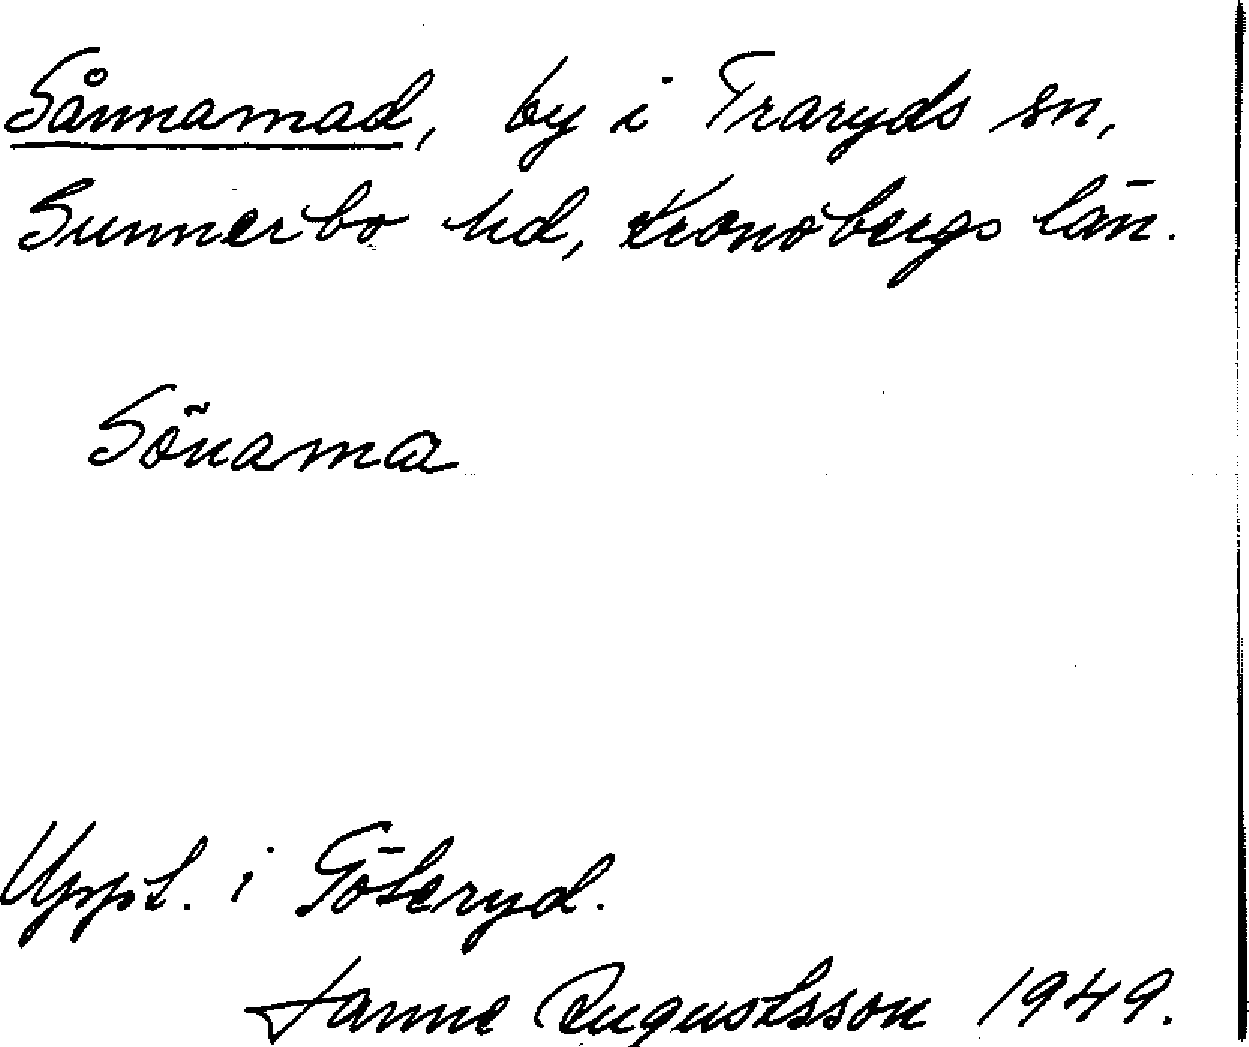 Sånnamad, by i Traryds sn,
Sunnerbo hd, Kronobergs län.
Sönama
Uppt. i Göteryd.
Janne Augustsson 1949.